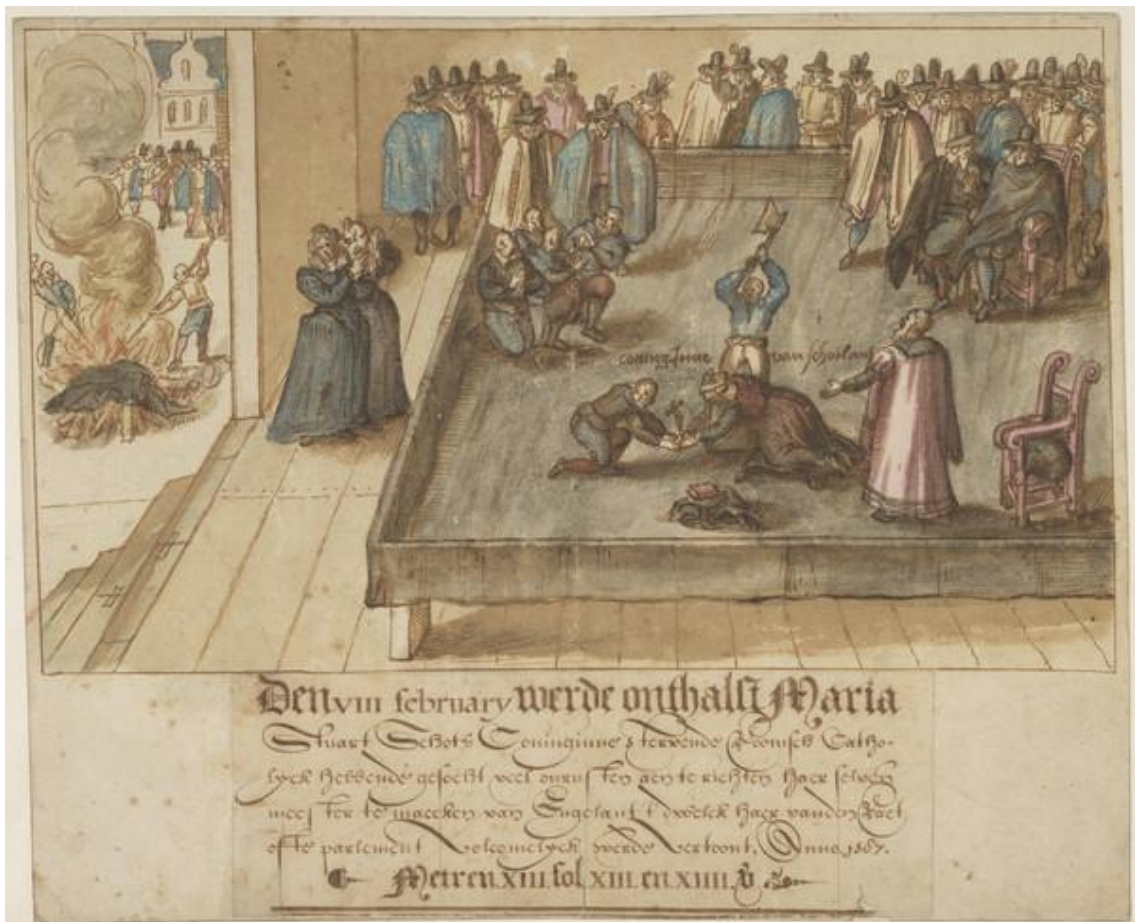 coninginne van schotlant
Den VIII february werde onthalst Maria
Stuart Schots Coninginne stervende Roomsch Catho-
lyck hebbende gesocht veel onrusten aen te richten haer selven
meester te maecken van Engelant t' welck haer vanden Raet
ofte parlement volcomelyck werde vertoont. Anno 1587.
Meteren XIII. fol XIII. en XIIII.